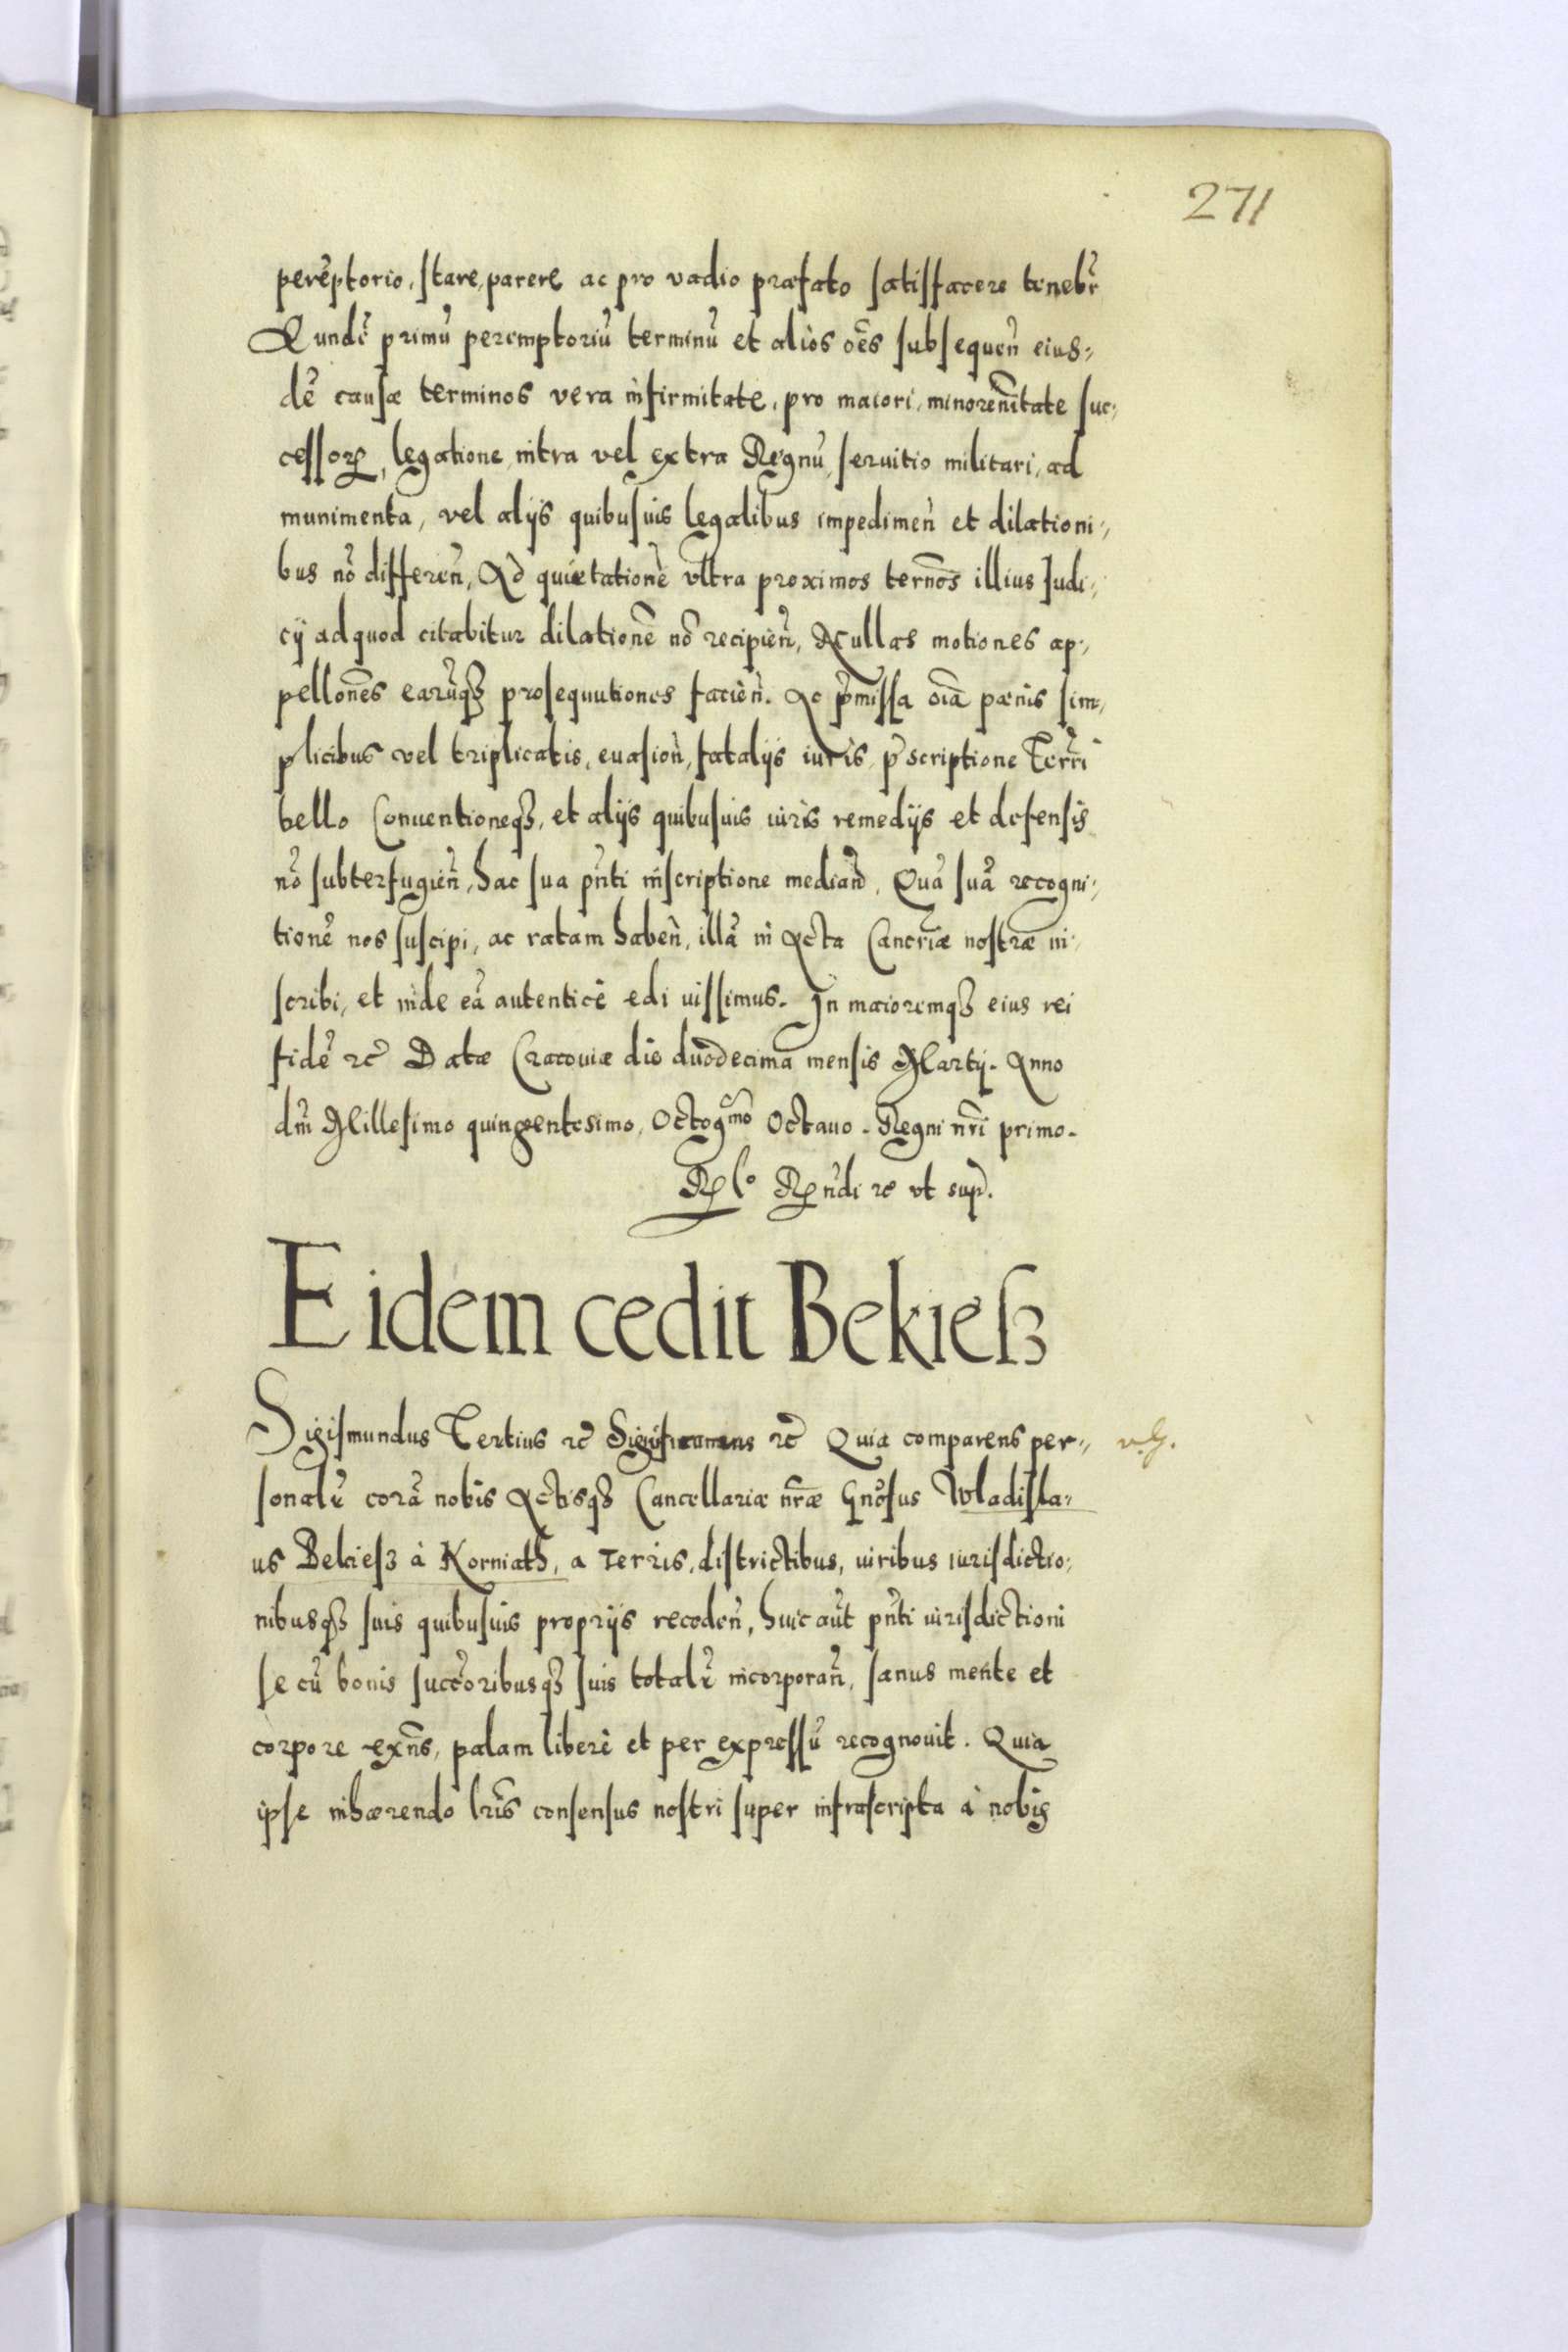 271
perẽptorio, stare, parere ac pro vadio præfato satisfacere tenebr̃
Eundẽ primũ peremptoriũ terminũ et alios oẽs subsequeñ eius⸗
dẽ causæ terminos vera infirmitate, pro maiori, minoreñitate suc⸗
cessorꝝ, legatione intra vel extra Regnũ, seruitio militari, ad
munimenta, vel alijs quibusuis legalibus impedimeñ et dilationi⸗
bus nõ differeñ, Ad quietationẽ vltra proximos terños illius Judi⸗
cij ad quod citabitur dilationẽ nõ recipieñ, Nullas motiones ap⸗
pelloñes earũqȝ prosequutiones facieñ. Ac p̃missa oĩa pænis sim⸗
plicibus vel triplicatis, euasioñ, fatalijs iuris, p̃scriptione Terr̃i
bello Conuentioneqȝ, et alijs quibusuis iuris remedijs et defensis
nõ subterfugieñ, hac sua pñti inscriptione mediañ, Quã suã recogni⸗
tionẽ nos suscipi, ac ratam habeñ, illã in Acta Cancr̃iæ nostræ in⸗
scribi, et inde eã autenticè edi iussimus. In maioremqȝ eius rei
fidẽ ꝛc̃ Datæ Cracouiæ die duodecima mensis Martij. Anno
dñi Millesimo quingentesimo, Octogᵐᵒ Octauo. Regni nr̃i primo.
Rꝑ lᵒ Rꝑ ñdi ꝛc vt sup̃.
Eidem cedit Bekiesz
Sigismundus Tertius ꝛc̃ Significamus ꝛc̃ Quia comparens per⸗
sonalr̃ corã nobis Actisqȝ Cancellariæ nr̃æ Gñosus Wladisla⸗
us Bekiesz à Korniath, a Terris, districtibus, iuribus iurisdictio⸗
nibusqȝ suis quibusuis proprijs recedeñ, huic aũt pñti iurisdictioni
se cũ bonis succ̃oribusqȝ suis totalr̃ incorporañ, sanus mente et
corpore exñs, palam liberè et per expressũ recognouit. Quia
ipse inhærendo lr̃is consensus nostri super infrascripta à nobis